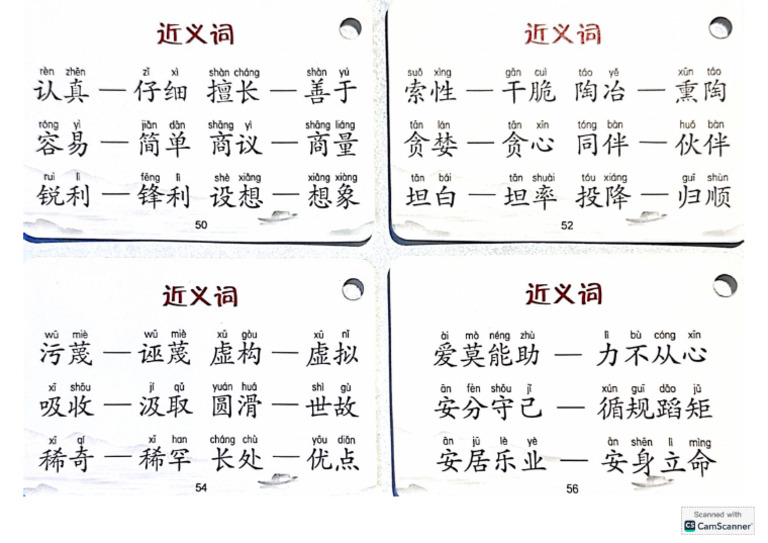 近义词
rèn zhēn zǐ xì shàn cháng shàn yú
认真 — 仔细 擅长 — 善于
róng yì jiǎn dān shāng yì shāng liáng
容易 — 简单 商议 — 商量
ruì lì fēng lì shè xiǎng xiǎng xiàng
锐利 — 锋利 设想 — 想象
50
近义词
suǒ xìng gān cuì táo yě xūn táo
索性 — 干脆 陶冶 — 熏陶
tān lán tān xīn tóng bàn huǒ bàn
贪婪 — 贪心 同伴 — 伙伴
tǎn bái tǎn shuài tóu xiáng guī shùn
坦白 — 坦率 投降 — 归顺
52
近义词
wū miè wū miè xū gòu xū nǐ
污蔑 — 诬蔑 虚构 — 虚拟
xī shōu jí qǔ yuán huá shì gù
吸收 — 汲取 圆滑 — 世故
xī qí xī han cháng chù yōu diǎn
稀奇 — 稀罕 长处 — 优点
54
近义词
ài mò néng zhù lì bù cóng xīn
爱莫能助 — 力不从心
ān fèn shǒu jǐ xún guī dǎo jǔ
安分守己 — 循规蹈矩
ān jū lè yè ān shēn lì mìng
安居乐业 — 安身立命
56
Scanned with
CS CamScanner